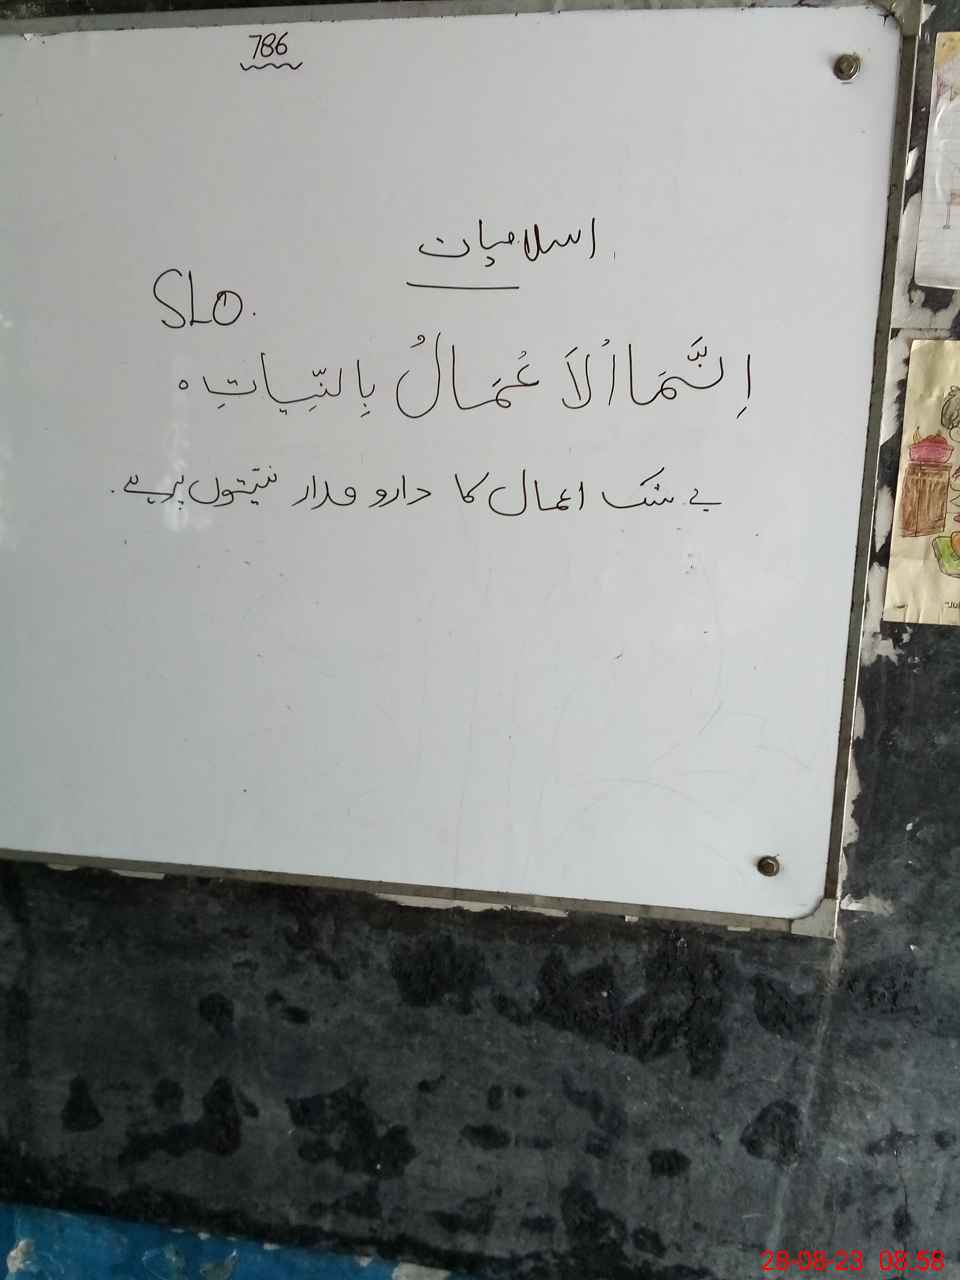 786
اسلامیات
SLO.
اِنَّمَا اْلاَ عْمَالُ بِالنِّیاتِ ہ
بے شک اعمال کا دارو مدار نیتوں پر ہے.
28-08-23 08:58